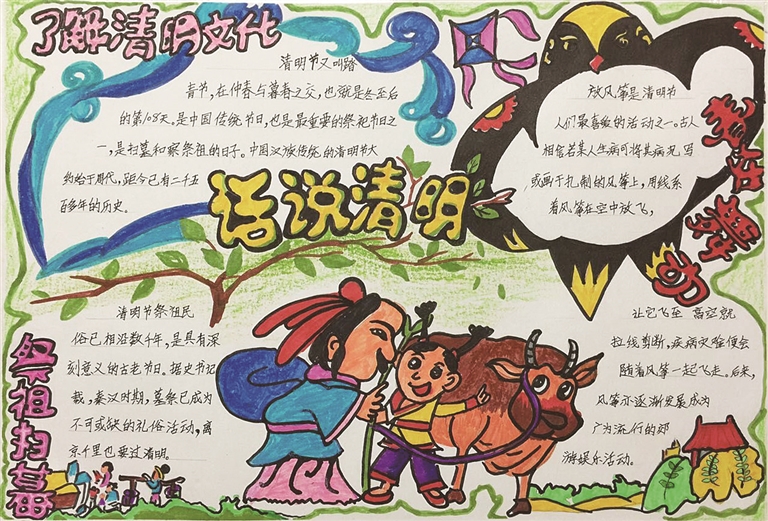 了解清明文化
清明节又叫踏
青节,在仲春与暮春之交,也就是冬至后
的第108天。是中国传统节日,也是最重要的祭祀节日之
一,是扫墓和察祭祖的日子。中国汉族传统的清明节大
约始于周代,距今已有二千五
百多年的历史。
话说清明
放风筝是清明节
人们最喜爱的活动之一。古人
相信若某人生病可将其病况写
或画于扎制的风筝上,用线系
着风筝在空中放飞,
让它飞至 高空就
拉线剪断,疾病灾难便会
随着风筝一起飞走。后来,
风筝亦逐渐发展成为
广为流行的郊
游娱乐活动。
祭祖扫墓
清明节祭祖民
俗已相沿数千年,是具有深
刻意义的古老节日。据史书记
载,秦汉时期,墓祭已成为
不可或缺的礼俗活动,离
京千里也要过清明。